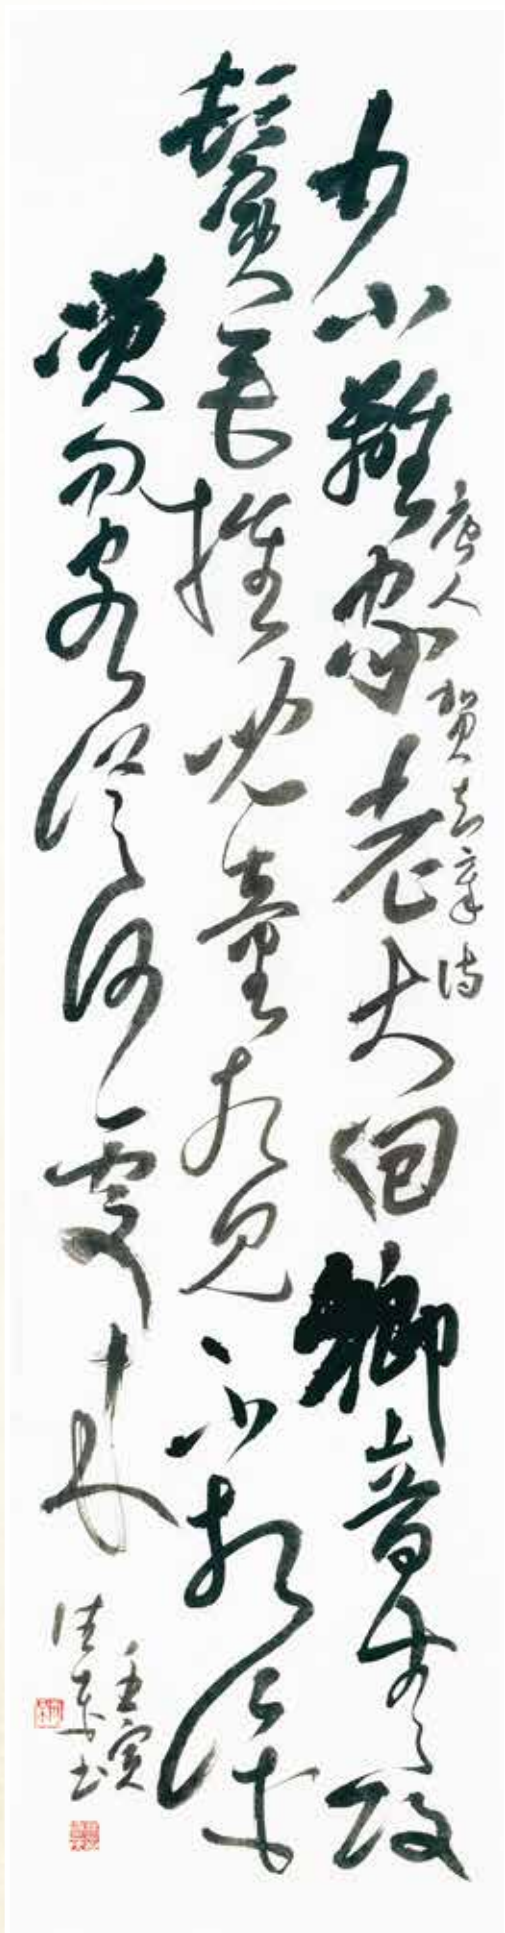 少小離家老大回鄉音無改
唐人賀知章詩
鬢毛摧兒童相見不相識
笑問客從何處來
壬寅
東書